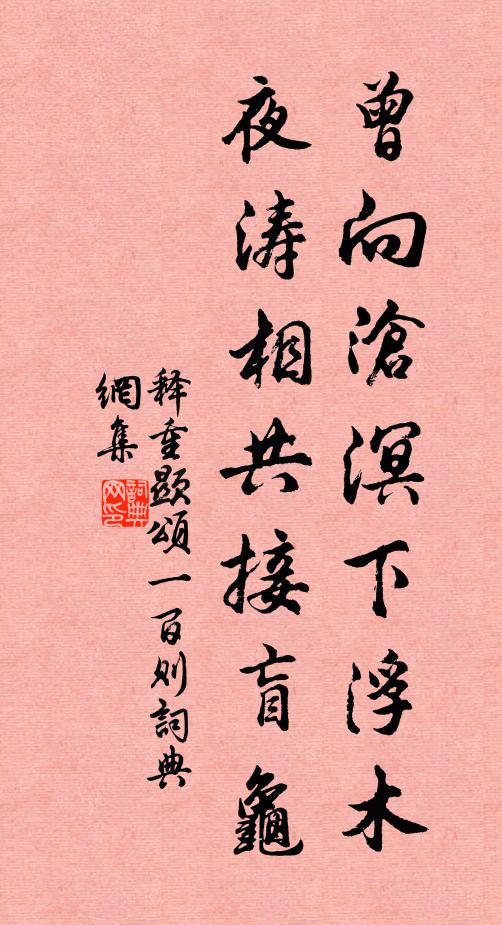 曾向滄溟下浮木
夜涛相共接盲龜
释重顯頌一百则詞典
網集
詞典网印